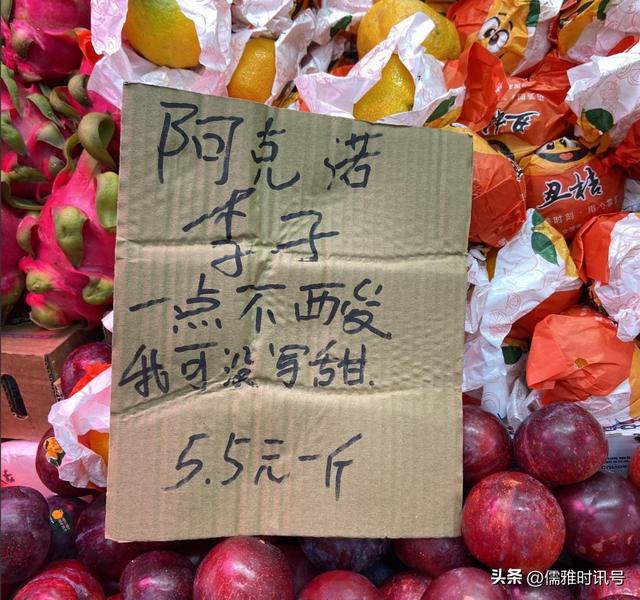 阿克诺
李子
一点不酸
我可没写甜.
5.5元一斤
丑桔
丑桔
头条 @儒雅时讯号